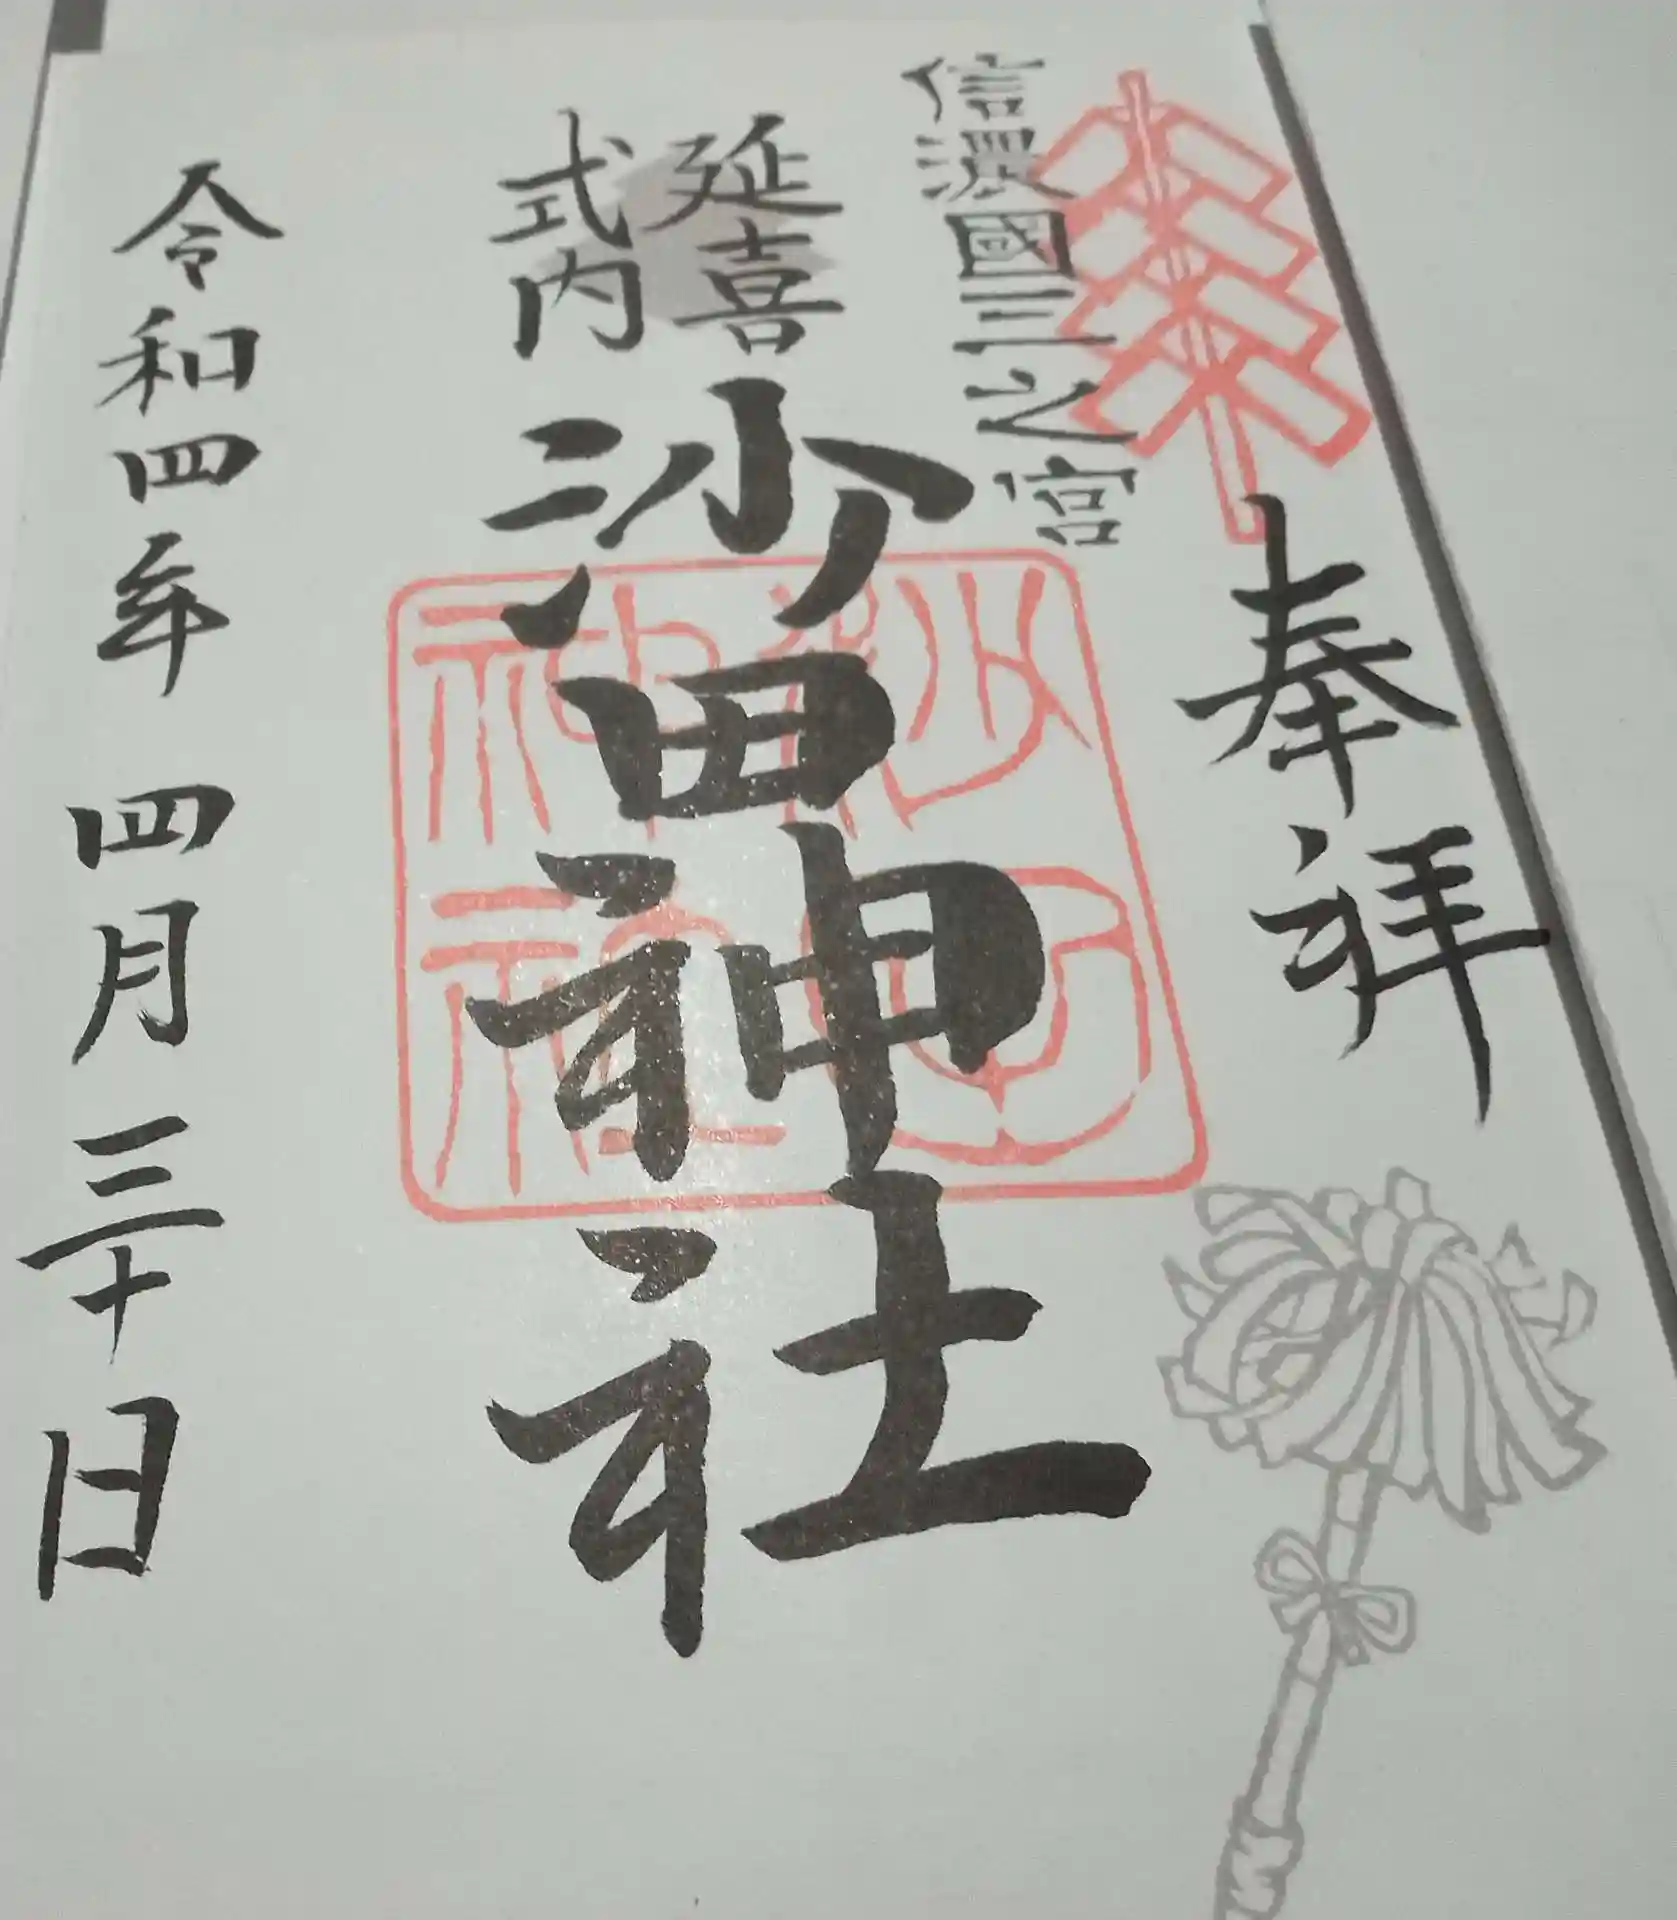 奉拝
信濃國三之宮
延喜
式内
沙田神社
沙田
神社
令和四年 四月三十日